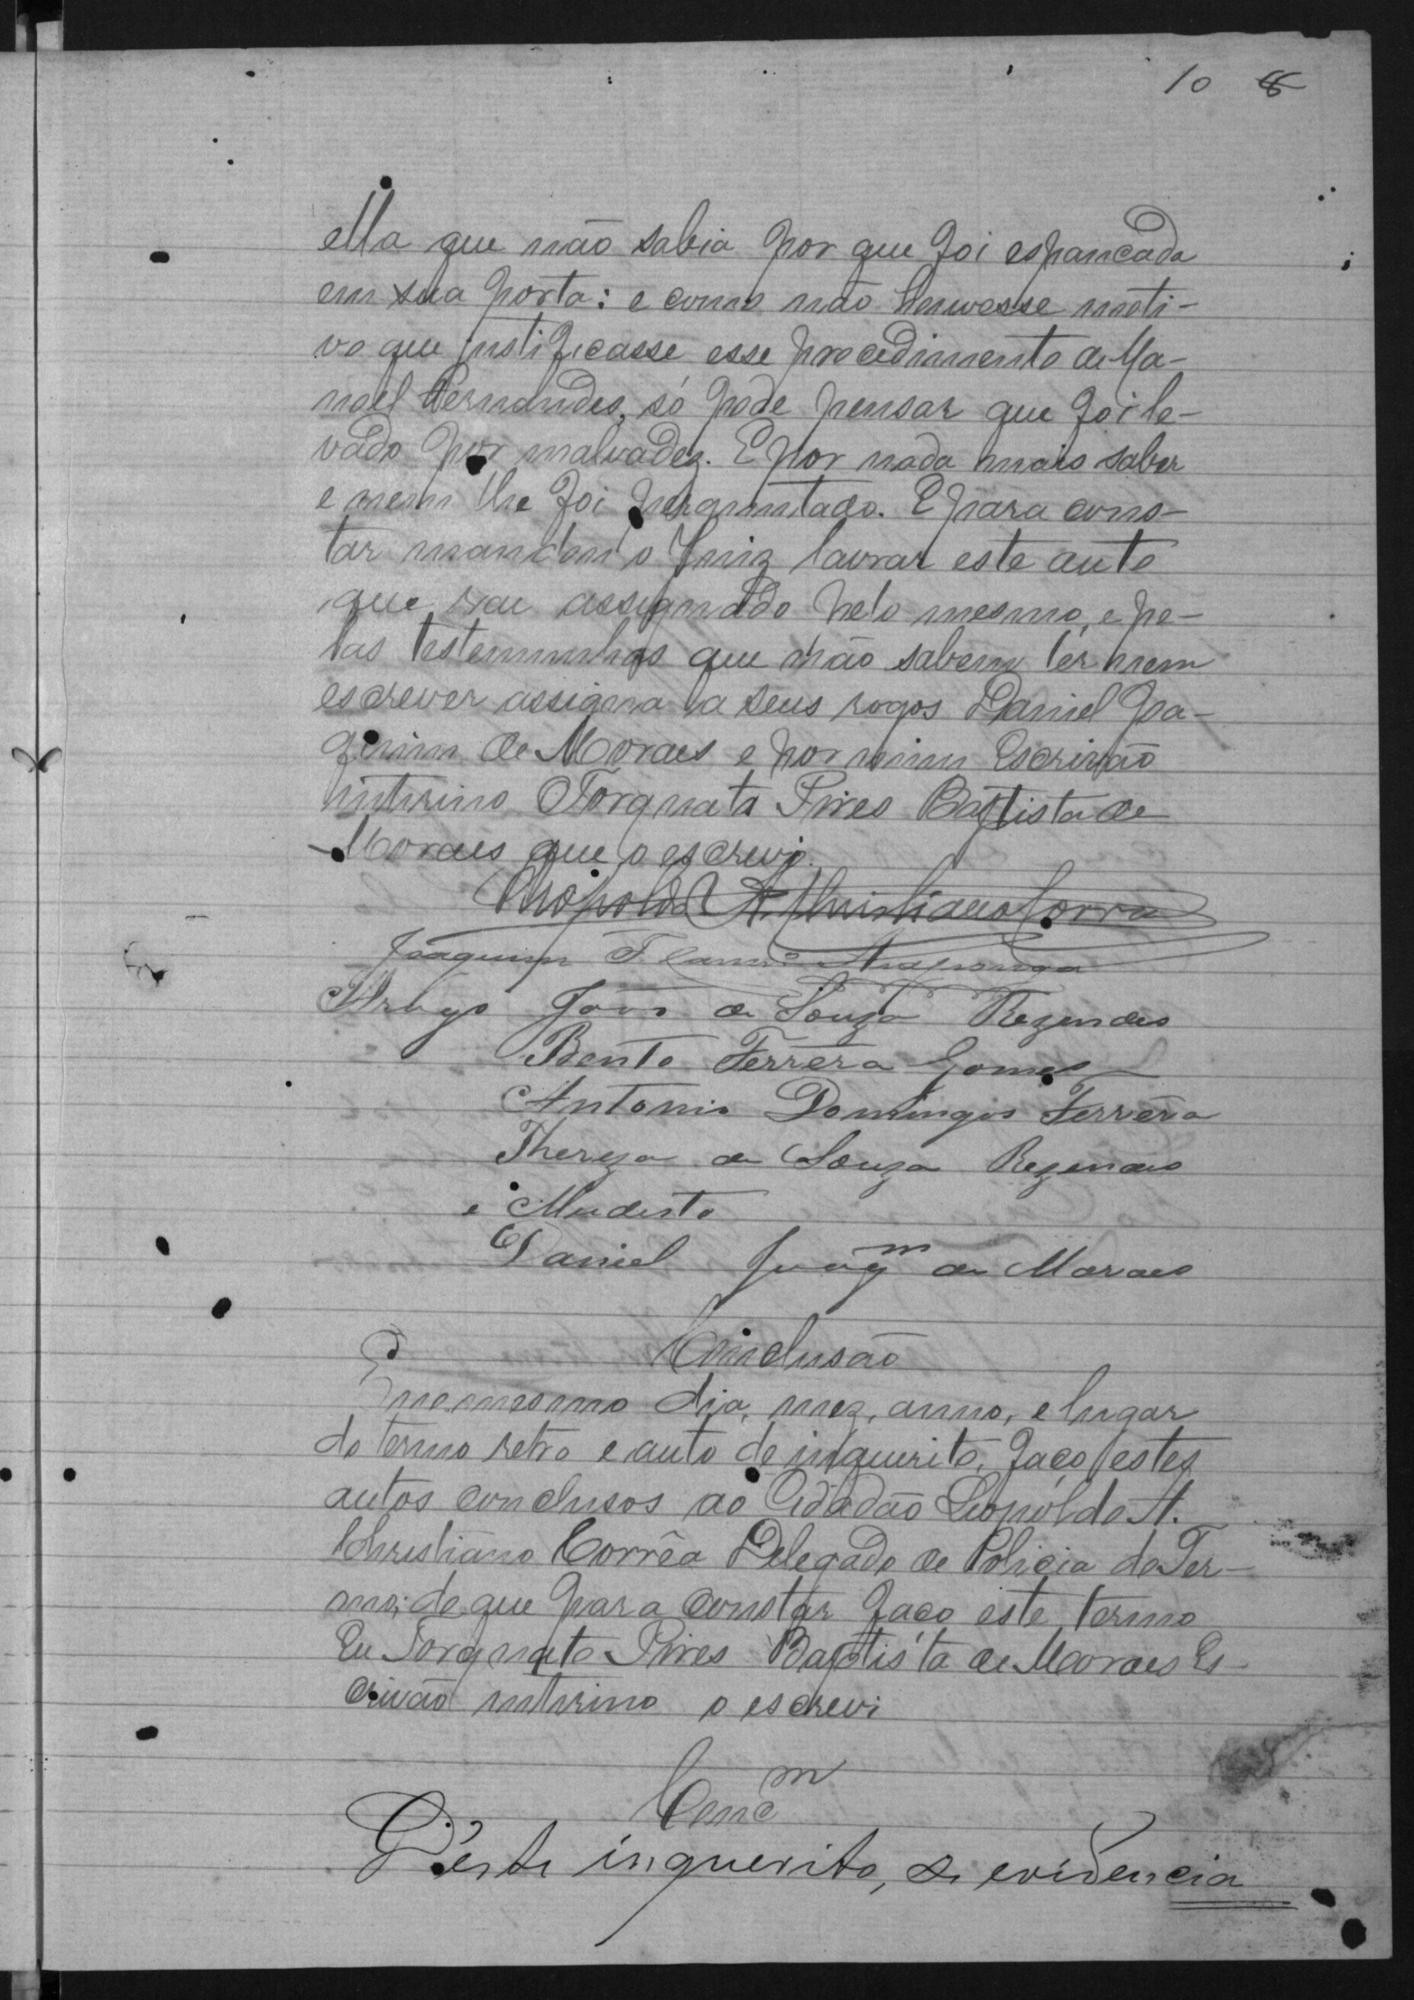 10 8
ella que não sabia por que foi espancada
em sua porta: e como não houvesse moti-
vo que justificasse esse procedimento de Ma-
noel Fernandes, só pode pensar que foi le-
vado por malvadez. E por nada mais saber
e nem lhe foi perguntado. E para cons-
tar mandou o Juiz lavrar este auto
que vae assignado pelo mesmo, e pe-
las testemunhas que não sabem ler nem
escrever assigna a seus rogos Daniel Joa-
quim de Moraes e por mim Escrivão
interino Torquato Pires Baptista de
Moraes que o escrevi.
Leopoldo A. Christiano Corrêa
Joaquim
Arugo João de Souza Rezendes
Bento Ferrera Gomes
Antonio Domingos Ferrera
Thereza de Souza Rezendes
e Mudesto
Daniel Joaqm de Moraes
Conclusão
E no mesmo dia, mez, anno, e lugar
do termo retro e auto de inquerito, faço estes
autos conclusos ao Cidadão Leopoldo A.
Christiano Corrêa Delegado de Policia do Ter-
mo; do que para constar faço este termo
Eu Torquato Pires Baptista de Moraes Es-
crivão interino o escrevi
D'este inquerito, se evidencia